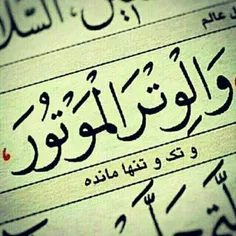 ل عالم
وَالْوِتْرَ الْمَوْتُورَ
و تک و تنها مانده